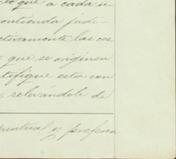 que a cada u
contienda judi-
ctivamente las cos
que se originen
tifique esta con
relevándole de
puntual y profesa